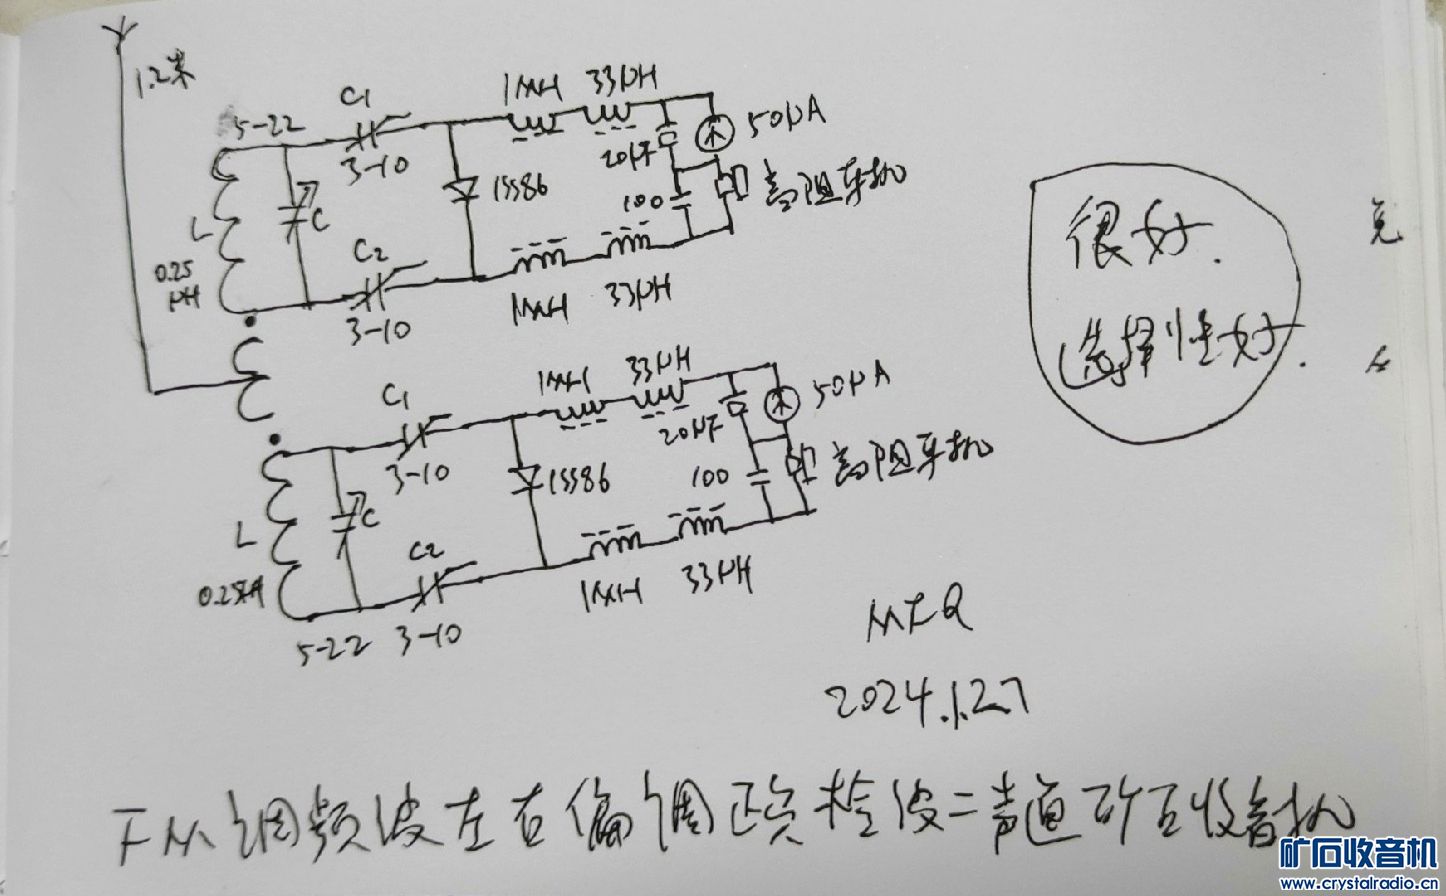 1.2米
5-22
C1
3-10
1MH
33μH
50μA
20μF
1SS86
100
高阻耳机
C
L
0.25
μH
C2
3-10
1MH
33μH
C1
3-10
1MH
33μH
50μA
20μF
1SS86
100
高阻耳机
C
L
C2
3-10
5-22
1MH
33μH
很好.
选择性好.
2024.1.27
FM调频波左右偏调正负检波二声道矿石收音机
矿石收音机
www.crystalradio.cn